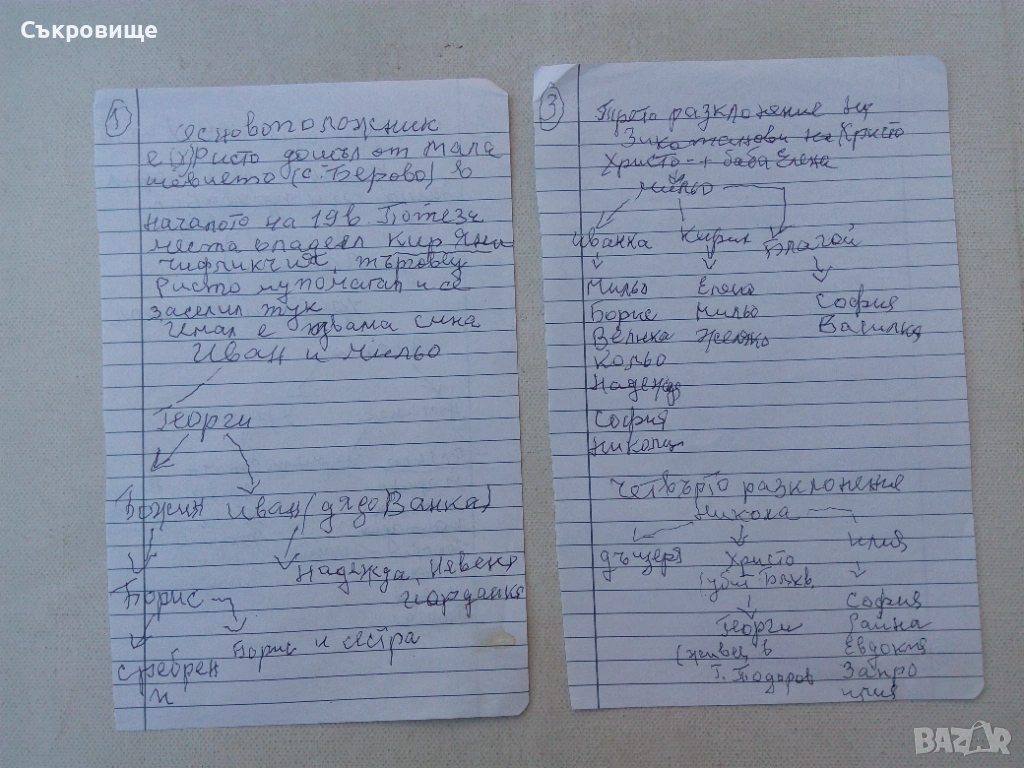 Съкровище
1
Основоположник
е (х)Ристо дошъл от Мала
(с. Берово) в
началото на 19 в. По тези
места владеел Кир Яни
чифликчия, търговец
Ристо му помагал и се
заселил тук
Имал е двама сина
Иван и Мильо
Георги
Божин Иван (дядо Ванка)
Надежда, Невена
Йорданка
Борис
Борис и сестра
Сребрен
3
Трето разклонение на
на Христо
Христо + баба Елена
Мильо
Иванка Кирил Благой
Мильо Елена
София
Борис Мильо
Василка
Величка Желю
Кольо
Надежда
София
Никола
Четвърто разклонение
Никола
дъщеря Христо Илия
София
Георги Райна
(живеещ в Евдокия
Г. Тодоров
BAZAR